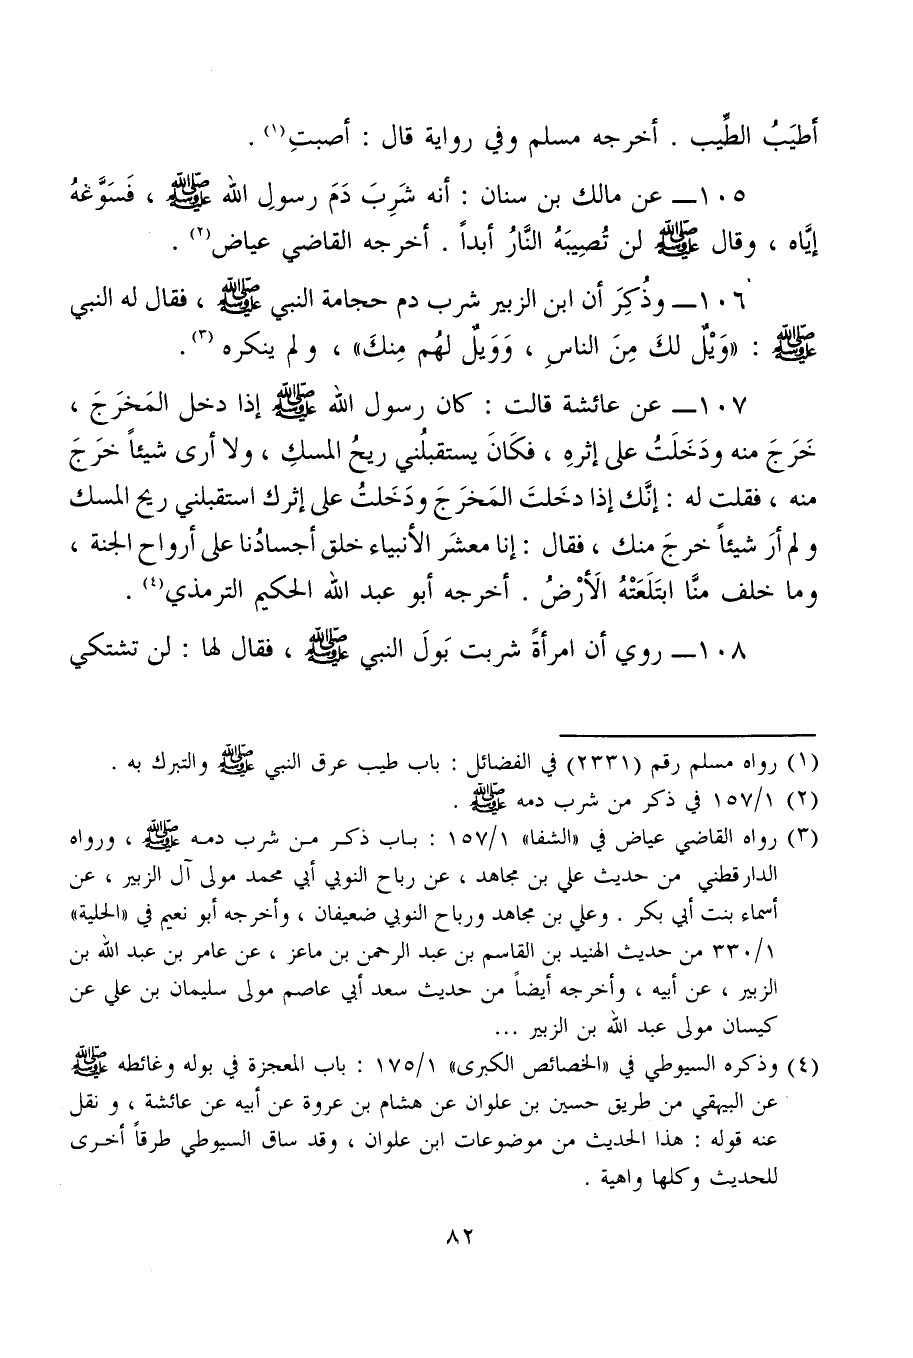 أطيَبُ الطِّيب . أخرجه مسلم وفي رواية قال : أصبتِ(١) .
١٠٥ــ عن مالك بن سنان : أنه شَرِبَ دَمَ رسولِ الله ﷺ ، فَسَوَّغهُ
إيَّاه ، وقال ﷺ لن تُصِيبَهُ النَّارُ أبداً . أخرجه القاضي عياض(٢) .
١٠٦ــ وذُكِرَ أن ابن الزبير شرب دم حجامة النبي ﷺ ، فقال له النبي
ﷺ : «وَيْلٌ لكَ مِنَ الناسِ ، وَوَيلٌ لهُم مِنكَ» ، ولم ينكره (٣) .
١٠٧ــ عن عائشة قالت : كان رسول الله ﷺ إذا دخل المَخرَجَ ،
خَرَجَ منه ودَخَلَتُ على إثرهِ ، فكَانَ يستقبلُني ريحُ المسكِ ، ولا أرى شيئاً خرَجَ
منه ، فقلت له : إنَّك إذا دخَلتَ المَخرَجَ ودَخَلتُ على إثرك استقبلني ريح المسك
ولم أرَ شيئاً خرجَ منك ، فقال : إنا معشَر الأنبياء خلق أجسادُنا على أرواح الجنة ،
وما خلف منَّا ابتَلَعَتْهُ الَأرْضُ . أخرجه أبو عبد الله الحكيم الترمذي(٤) .
١٠٨ــ روي أن امرأةً شربت بَولَ النبي ﷺ ، فقال لها : لن تشتكي
(١) رواه مسلم رقم (٢٣٣١) في الفضائل : باب طيب عرق النبي ﷺ والتبرك به .
(٢) ١٥٧/١ في ذكر من شرب دمه ﷺ .
(٣) رواه القاضي عياض في «الشفا» ١٥٧/١ : باب ذكر من شرب دمه ﷺ ، ورواه
الدارقطني من حديث علي بن مجاهد ، عن رباح النوبي أبي محمد مولى آل الزبير ، عن
أسماء بنت أبي بكر . وعلي بن مجاهد ورباح النوبي ضعيفان ، وأخرجه أبو نعيم في «الحلية»
٣٣٠/١ من حديث الهنيد بن القاسم بن عبد الرحمن بن ماعز ، عن عامر بن عبد الله بن
الزبير ، عن أبيه ، وأخرجه أيضاً من حديث سعد أبي عاصم مولى سليمان بن علي عن
كيسان مولى عبد الله بن الزبير ...
(٤) وذكره السيوطي في «الخصائص الكبرى» ١٧٥/١ : باب المعجزة في بوله وغائطه ﷺ
عن البيهقي من طريق حسين بن علوان عن هشام بن عروة عن أبيه عن عائشة ، و نقل
عنه قوله : هذا الحديث من موضوعات ابن علوان ، وقد ساق السيوطي طرقاً أخرى
للحديث وكلها واهية .
٨٢